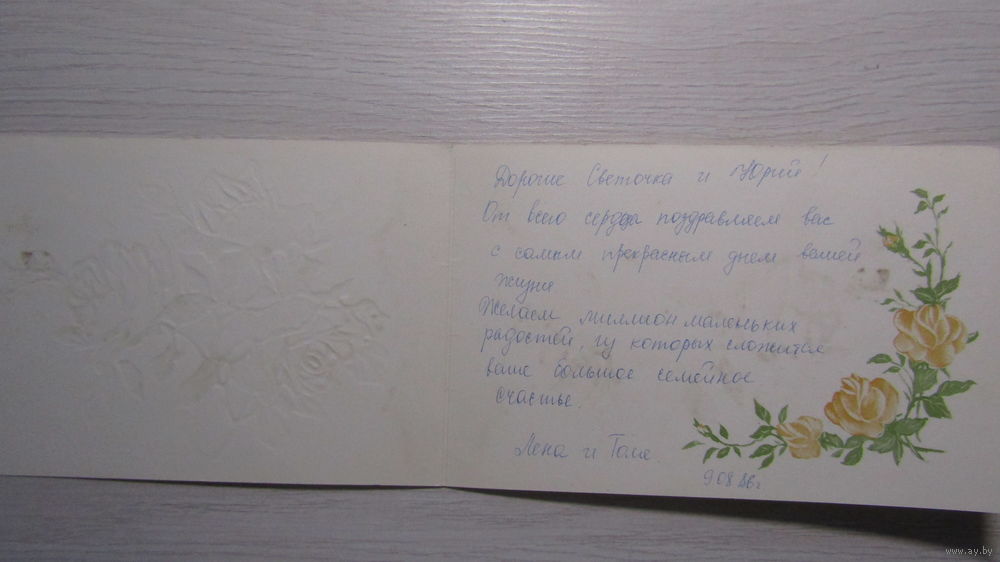 Дорогие Светочка и Юрий!
От всего сердца поздравляем вас
с самым прекрасным днем вашей
жизни
Желаем миллион маленьких
радостей, из которых сложится
ваше большое семейное
счастье.
Лена и Толя.
9 08 86г
www.ay.by